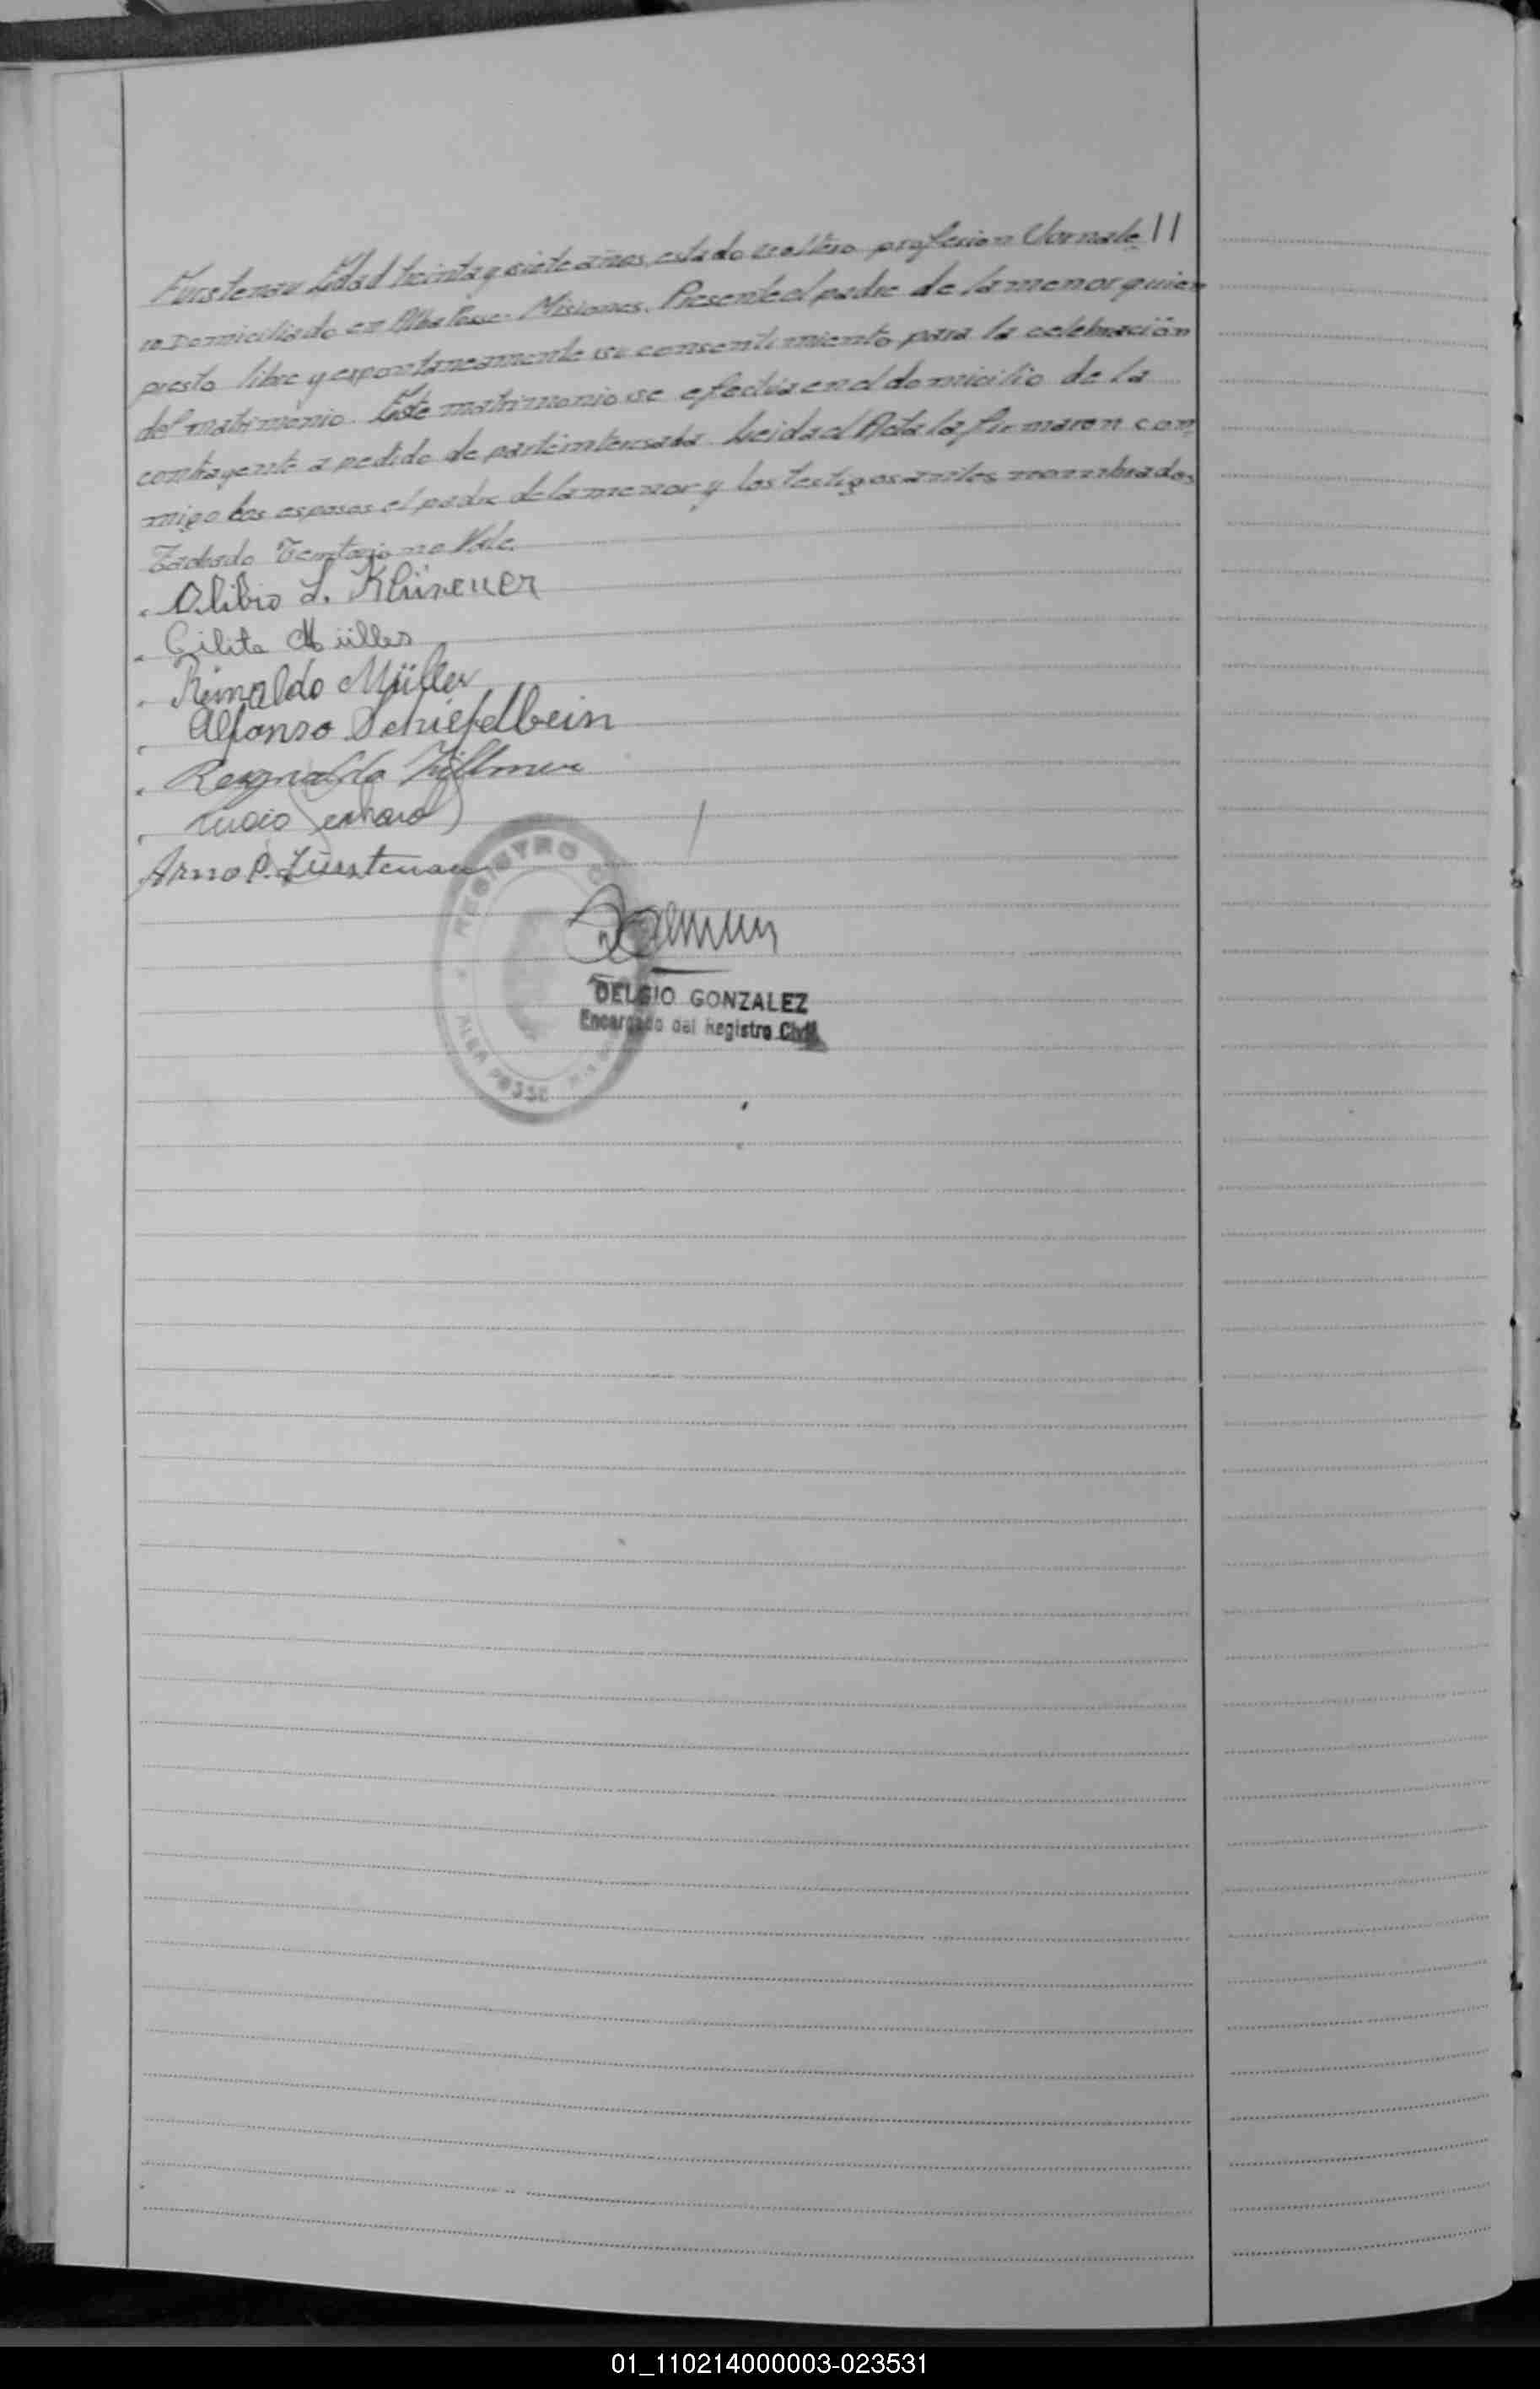 Furstenau Edad treinta y siete años, estado soltero profesion Jornale 11
ro Domiciliado en Alba Posse - Misiones. Presente el padre de la menor quien
presto libre y expontaneamente su consentimiento para la celebración
del matrimonio. Este matrimonio se efectúa en el domicilio de la
contrayente a pedido de parte interesada. Leida el Acta la firmaron con
migo los esposos el padre de la menor y los testigos antes nombrados
Tachado Territorio no Vale.
Olibio L. Klüsener
Cilita Müller
Reinaldo Müller
Alfonso Schiefelbein
Reynaldo
Lucio
Arno P. Fürstenau
REGISTRO
ALBA POSSE
DELSIO GONZALEZ
Encargado del Registro Civil
01_110214000003-023531